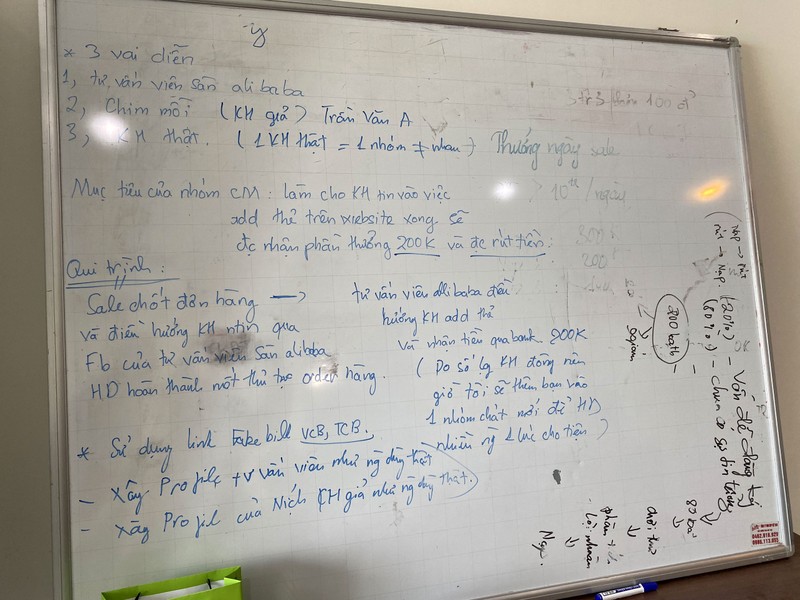 * 3 vai diễn
1, tư vấn viên sàn alibaba
2, Chim mồi (KH giả) Trần Văn A
3, KH thật. (1 KH thật = 1 nhóm ≠ nhau)
Thưởng ngày sale
10tr/ngày
300
200
Mục tiêu của nhóm CM: làm cho KH tin vào việc
add thẻ trên website xong sẽ
đc nhận phần thưởng 200K và đc rút tiền.
Qui trình:
Sale chốt đơn hàng →
và điều hướng KH ntin qua
Fb của tư vấn viên sàn alibaba
HD hoàn thành nốt thủ tục order hàng.
tư vấn viên alibaba điều
hướng KH add thẻ
và nhận tiền qua bank 200K
(Do số lg KH đông nên
giờ tôi sẽ thêm bạn vào
1 nhóm chát mới để HD
nhiều ng 1 lúc cho tiện)
* Sử dụng link Fake bill VCB, TCB.
- Xây Profile tư vấn viên như ng dùng thật
- Xây Profil của Ních KH giả như ng dùng thật.
300 bath
(20%) - Vấn đề đăng ký
(80%) - chưa có sự tin tưởng
chơi thử
lợi nhuận
Nạp.
0462.818.929
0986.113.855